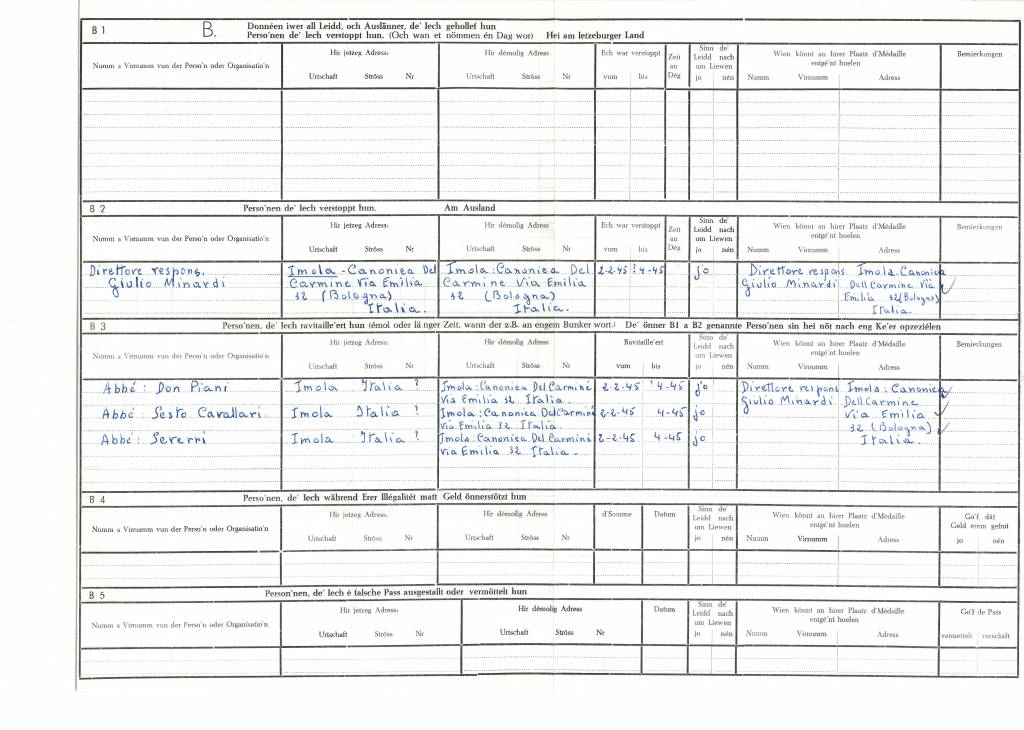 B 1
B.
Donnéen iwer all Leidd, och Auslänner, de' Iech gehollef hun
Perso'nen de' Iech verstoppt hun. (Och wan et nömmen én Dag wor) Hei am letzeburger Land
Numm a Virnumm vun der Perso'n oder Organisatio'n
Hir jetzeg Adress:
Urtschaft Ströss Nr
Hir démolig Adress
Urtschaft Ströss Nr
Ech war verstoppt
vum bis
Zeit
an
Dég
Sinn de'
Leidd nach
um Liewen
jo nén
Wien könnt an hirer Plaatz d'Médaille
entgé'nt huelen
Numm Virnumm Adress
Bemierkungen
B 2
Perso'nen de' Iech verstoppt hun. Am Ausland
Numm a Virnumm vun der Perso'n oder Organisatio'n
Hir jetzeg Adress:
Urtschaft Ströss Nr
Hir démolig Adress
Urtschaft Ströss Nr
Ech war verstoppt
vum bis
Zeit
an
Dég
Sinn de'
Leidd nach
um Liewen
jo nén
Wien könnt an hirer Plaatz d'Médaille
entgé'nt huelen
Numm Virnumm Adress
Bemierkungen
Direttore respons. Imola - Canonica Del Imola : Canonica Del 2-2-45 ? 4-45 jo Direttore respons Imola. Canonica
Giulio Minardi Carmine Via Emilia Carmine Via Emilia Giulio Minardi Dell Carmine Via
32 (Bologna) 32 (Bologna) Emilia 32 (Bologna)
Italia. Italia. Italia.
B 3
Perso'nen, de' Iech ravitaille'ert hun (émol oder länger Zeit, wann der z.B. an engem Bunker wort.) De' önner B1 a B2 genannte Perso'nen sin hei nöt nach eng Ke'er opzeziélen
Numm a Virnumm vun der Perso'n oder Organisatio'n
Hir jetzeg Adress:
Urtschaft Ströss Nr
Hir démolig Adress
Urtschaft Ströss Nr
Ravitaille'ert
vum bis
Sinn de'
Leidd nach
um Liewen
jo nén
Wien könnt an hirer Plaatz d'Médaille
entgé'nt huelen
Numm Virnumm Adress
Bemierkungen
Abbé : Don Piani Imola Italia ? Imola : Canonica Del Carmine 2-2-45 ? 4-45 jo Direttore respons Imola : Canonica
Via Emilia 32 Italia. Giulio Minardi Dell Carmine
Abbé : Sesto Cavallari. Imola Italia ? Imola : Canonica Del Carmine 2-2-45 4-45 jo Via Emilia
Via Emilia 32 Italia. 32 (Bologna)
Abbé : Severni Imola Italia ? Imola : Canonica Del Carmine 2-2-45 4-45 jo Italia.
Via Emilia 32 Italia.
B 4
Perso'nen, de' Iech während Erer Illégalitét matt Geld önnerstötzt hun
Numm a Virnumm vun der Perso'n oder Organisatio'n
Hir jetzeg Adress:
Urtschaft Ströss Nr
Hir démolig Adress
Urtschaft Ströss Nr
d'Somme
Datum
Sinn de'
Leidd nach
um Liewen
jo nén
Wien könnt an hirer Plaatz d'Médaille
entgé'nt huelen
Numm Virnumm Adress
Go'f dât
Geld erem gefrot
jo nén
B 5
Person'nen, de' Iech é falsche Pass ausgestallt oder vermöttelt hun
Numm a Virnumm vun der Perso'n oder Organisatio'n
Hir jetzeg Adress:
Urtschaft Ströss Nr
Hir démolig Adress
Urtschaft Ströss Nr
Datum
Sinn de'
Leidd nach
um Liewen
jo nén
Wien könnt an hirer Plaatz d'Médaille
entgé'nt huelen
Numm Virnumm Adress
Go'f de Pass
vermettelt verschäft